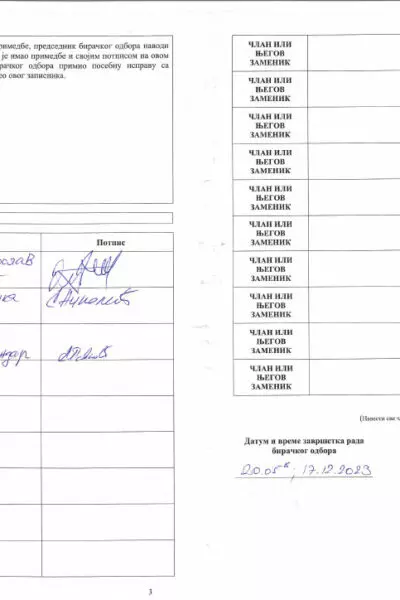 римедбе, председник бирачког одбора наводи
је имао примедбе и својим потписом на овом
рачког одбора примио посебну исправу са
ео овог записника.
Потпис
3
ЧЛАН ИЛИ
ЊЕГОВ
ЗАМЕНИК
ЧЛАН ИЛИ
ЊЕГОВ
ЗАМЕНИК
ЧЛАН ИЛИ
ЊЕГОВ
ЗАМЕНИК
ЧЛАН ИЛИ
ЊЕГОВ
ЗАМЕНИК
ЧЛАН ИЛИ
ЊЕГОВ
ЗАМЕНИК
ЧЛАН ИЛИ
ЊЕГОВ
ЗАМЕНИК
ЧЛАН ИЛИ
ЊЕГОВ
ЗАМЕНИК
ЧЛАН ИЛИ
ЊЕГОВ
ЗАМЕНИК
ЧЛАН ИЛИ
ЊЕГОВ
ЗАМЕНИК
ЧЛАН ИЛИ
ЊЕГОВ
ЗАМЕНИК
Датум и време завршетка рада
бирачког одбора
20.05, 17.12.2023